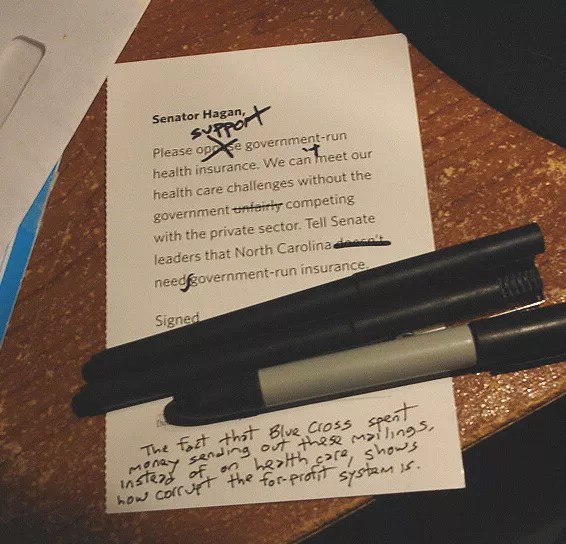 Senator Hagan,
support
Please oppose government-run
health insurance. We can't meet our
health care challenges without the
government unfairly competing
with the private sector. Tell Senate
leaders that North Carolina doesn't
needs government-run insurance.
Signed
The fact that Blue Cross spent
money sending out these mailings,
instead of on health care, shows
how corrupt the for-profit system is.